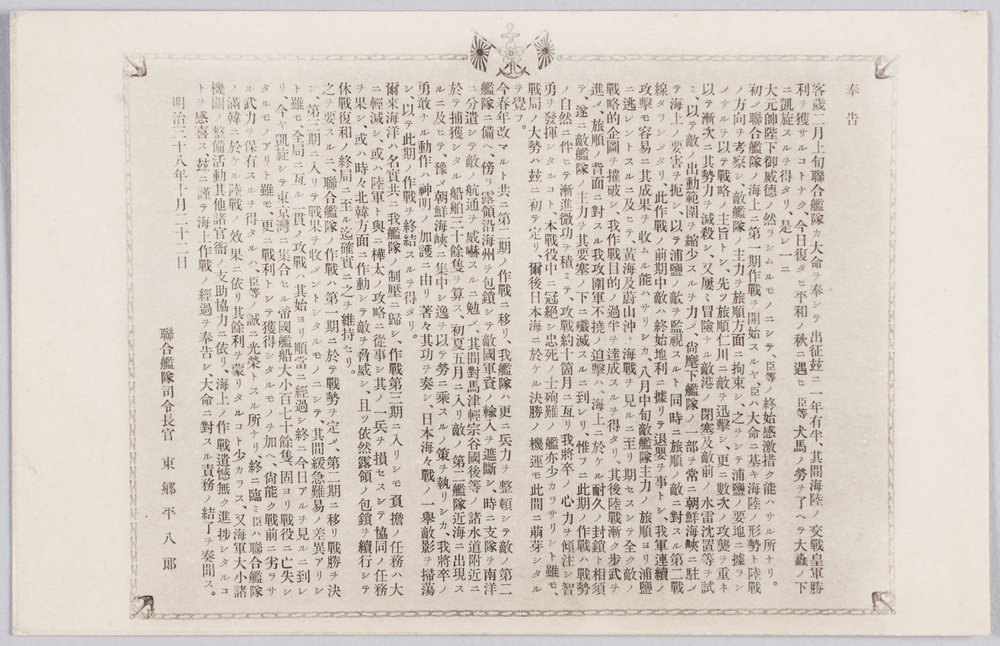 奉告
客歲二月上旬聯合艦隊カ大命ヲ奉シテ出征玆ニ一年有半、其間海陸ノ交戰皇軍勝
利ヲ獲サルコトナク、今日復タヒ平和ノ秋ニ遇ヒ臣等犬馬ノ勞ヲ了ヘテ大纛ノ下
ニ凱旋スルヲ得タリ、是レ一ニ
大元帥陛下御威德ノ然ラシムルモノニシテ、臣等ノ終始感激措ク能ハサル所ナリ。
初メ聯合艦隊ノ海上ニ第一期作戰ヲ開始スルヤ、臣ハ大命ニ基キ海陸ノ形勢ト陸戰
ノ方向ヲ考察シ、敵艦隊ノ主力ヲ旅順方面ニ拘束シ、之ヲシテ浦鹽ノ要地ニ據ラシ
メサルヲ以テ戰略ノ主旨トシ、先ツ旅順仁川ニ敵ヲ迅擊シ、更ニ數次ノ攻襲ヲ重ネ
以テ漸次ニ其勢力ヲ減殺シ、又屢〻冒險ナル敵港ノ閉塞及敵前ノ水雷沈置等ヲ試
ミ、以テ敵ノ出動範圍ヲ縮少スルヲ力メ、尙麾下艦隊ノ一部ヲ常ニ朝鮮海峽ニ駐メ
テ海上ノ要害ヲ扼シ、以テ浦鹽ノ敵ヲ監視スルト同時ニ旅順ノ敵ニ對スル第二戰
線タラシメタリ、此作戰ノ前期中敵ハ終始地利ニ據リテ退嬰ヲ事トシ、我軍連續ノ
攻擊モ容易ニ其成果ヲ收ムル能ハサリシカ、八月中旬敵艦隊主力ノ旅順ヨリ浦鹽
ニ逃レントスルニ及ヒテ、黃海及蔚山沖ノ海戰ヲ見ルニ至リ期セスシテ全ク敵ノ
戰略的企圖ヲ摧破シ、我作戰目的ノ過半ヲ達成スルヲ得タリ、其後陸戰漸ク步武ヲ
進メ旅順ノ背面ニ對スル我攻圍軍不撓ノ迫擊ハ、海上ニ於ケル耐久ノ封鎖ト相須
テ、遂ニ敵艦隊ノ主力ヲ其要塞ノ下ニ殲滅スルニ到レリ、惟フニ此期ノ作戰ハ戰勢
ノ自然ニ伴ヒテ漸進微功ヲ積ミテ、攻戰約十箇月ニ亙リ我將卒ノ心力ヲ傾注シ智
勇ヲ發揮シタルコト、本戰役中ニ冠絕シ忠死ノ士殉難ノ艦亦少カラサリシト雖モ、
戰局ノ大勢ハ玆ニ初テ定リ、爾後日本海ニ於ケル決勝ノ機運モ此間ニ萠芽シタル
ヲ覺フ。
今春年改マルト共ニ第二期ノ作戰ニ移リ、我艦隊ハ更ニ兵力ヲ整頓シテ敵ノ第二
艦隊ニ備ヘ、傍ラ露領沿海州ヲ包鎖シテ敵國軍資ノ輸入ヲ遮斷シ、時ニ支隊ヲ南洋
ニ分遣シテ敵ノ航通ヲ威嚇スルニ勉メ、其間對馬津輕宗谷國後等ノ諸水道附近ニ
於テ捕獲シタル船舶三十餘隻ヲ算ス、初夏五月ニ入リ敵ノ第二艦隊近海ニ出現ス
ルニ及ヒテ、豫メ朝鮮海峽ニ集中シ逸ヲ以テ勞ニ乘スルノ策ヲ執リシカ、我將卒ノ
勇敢ナル動作ハ神明ノ加護ニ由リ著々其功ヲ奏シ、日本海々戰ノ一擧敵影ヲ掃蕩
シ、以テ此期ノ作戰ヲ終結スルヲ得タリ。
爾來海洋ハ名實共ニ我艦隊ノ制壓ニ歸シ、作戰第三期ニ入リシモ負擔ノ任務ハ大
ニ輕減シ、或ハ陸軍ト與ニ樺太ノ攻略ニ從事シ其ノ一兵ヲ損セスシテ協同ノ任務
ヲ果シ、或ハ時々北韓方面ニ作動シテ敵ヲ脅威シ、且ツ依然露領ノ包鎖ヲ續行シテ
休戰復和ノ終局ニ至ル迄確實ニ之ヲ維持セリ。
之ヲ要スルニ、聯合艦隊ノ作戰ハ第一期ニ於テ戰勢ヲ定メ、第二期ニ移リ戰勝ヲ決
シ、第三期ニ入リテ戰果ヲ收メントシタルモノニシテ其間緩急難易ノ差異アリシ
ト雖モ、全局ニ亙ル一貫ノ攻戰ハ其始ヨリ順當ニ經過シ終ニ今日アルヲ見ルニ到レ
リ、今ヤ凱旋シテ東京灣ニ集合セル帝國艦船大小百七十餘隻、固ヨリ戰役ニ亡失シ
タルモノアリト雖モ、更ニ戰利トシテ獲得シタルモノヲ加ヘ、尙能ク戰前ニ劣ラサ
ル武力ヲ保有スルヲ得タルハ、臣等ノ誠ニ光榮トスル所ナリ、終ニ臨ミ臣ハ聯合艦隊
ノ滿韓ニ於ケル陸戰ノ效果ニ依リ其餘利ヲ蒙リタルコト少カラス、又海軍大小諸
機關ノ整備活動其他諸官衙ノ支助協力ニ依リ、海上ノ作戰遺憾無ク進捗シタルコ
トヲ感喜ス、玆ニ謹テ海上作戰ノ經過ヲ奉告シ、大命ニ對スル責務ノ結了ヲ奏聞ス。
明治三十八年十月二十二日
聯合艦隊司令長官 東郷平八郎